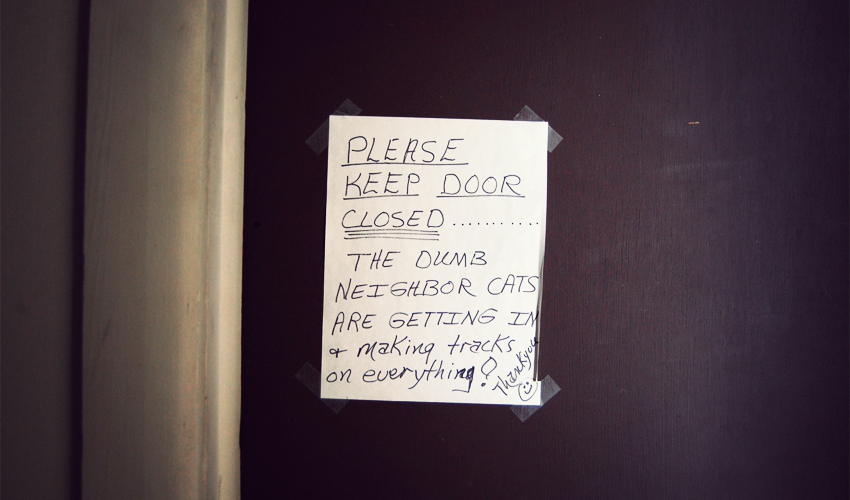 PLEASE
KEEP DOOR
CLOSED...........
THE DUMB
NEIGHBOR CATS
ARE GETTING IN
& making tracks
on everything!
Thank you